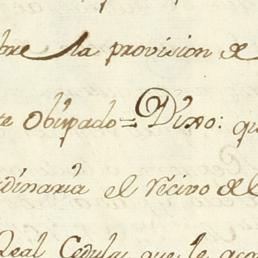 bre la provision de
te Obispado = Dixo: qu
dinaria el recivo de l
Real Cedula, que le aco